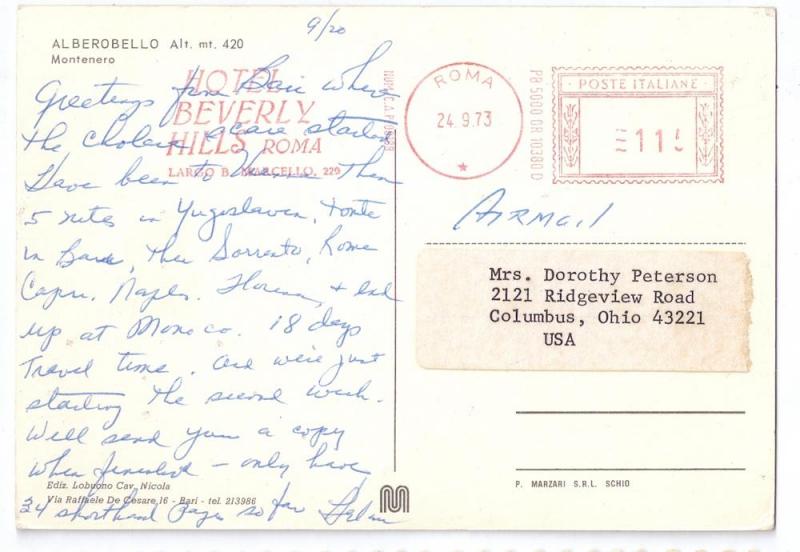 9/20
ALBEROBELLO Alt. mt. 420
Montenero
HOTEL
BEVERLY
HILLS ROMA
LARGO B. MARCELLO, 220
ROMA
24.9.73
PB 5000 GR 10380 D
POSTE ITALIANE
115
AIRMAIL
Greetings from Bari where
the cholera scare started
Have been to Vienna then
5 nites in Yugoslavia,
in Bari, then Sorrento, Rome
Capri, Naples, Florence, + end
up at Monaco. 18 days
travel time. and we're just
starting the second week.
Will send you a copy
when finished - only have
24 shorthand pages so far Helen
Mrs. Dorothy Peterson
2121 Ridgeview Road
Columbus, Ohio 43221
USA
Ediz. Lobuono Cav. Nicola
Via Raffaele De Cesare, 16 - Bari - tel. 213986
P. MARZARI S.R.L. SCHIO